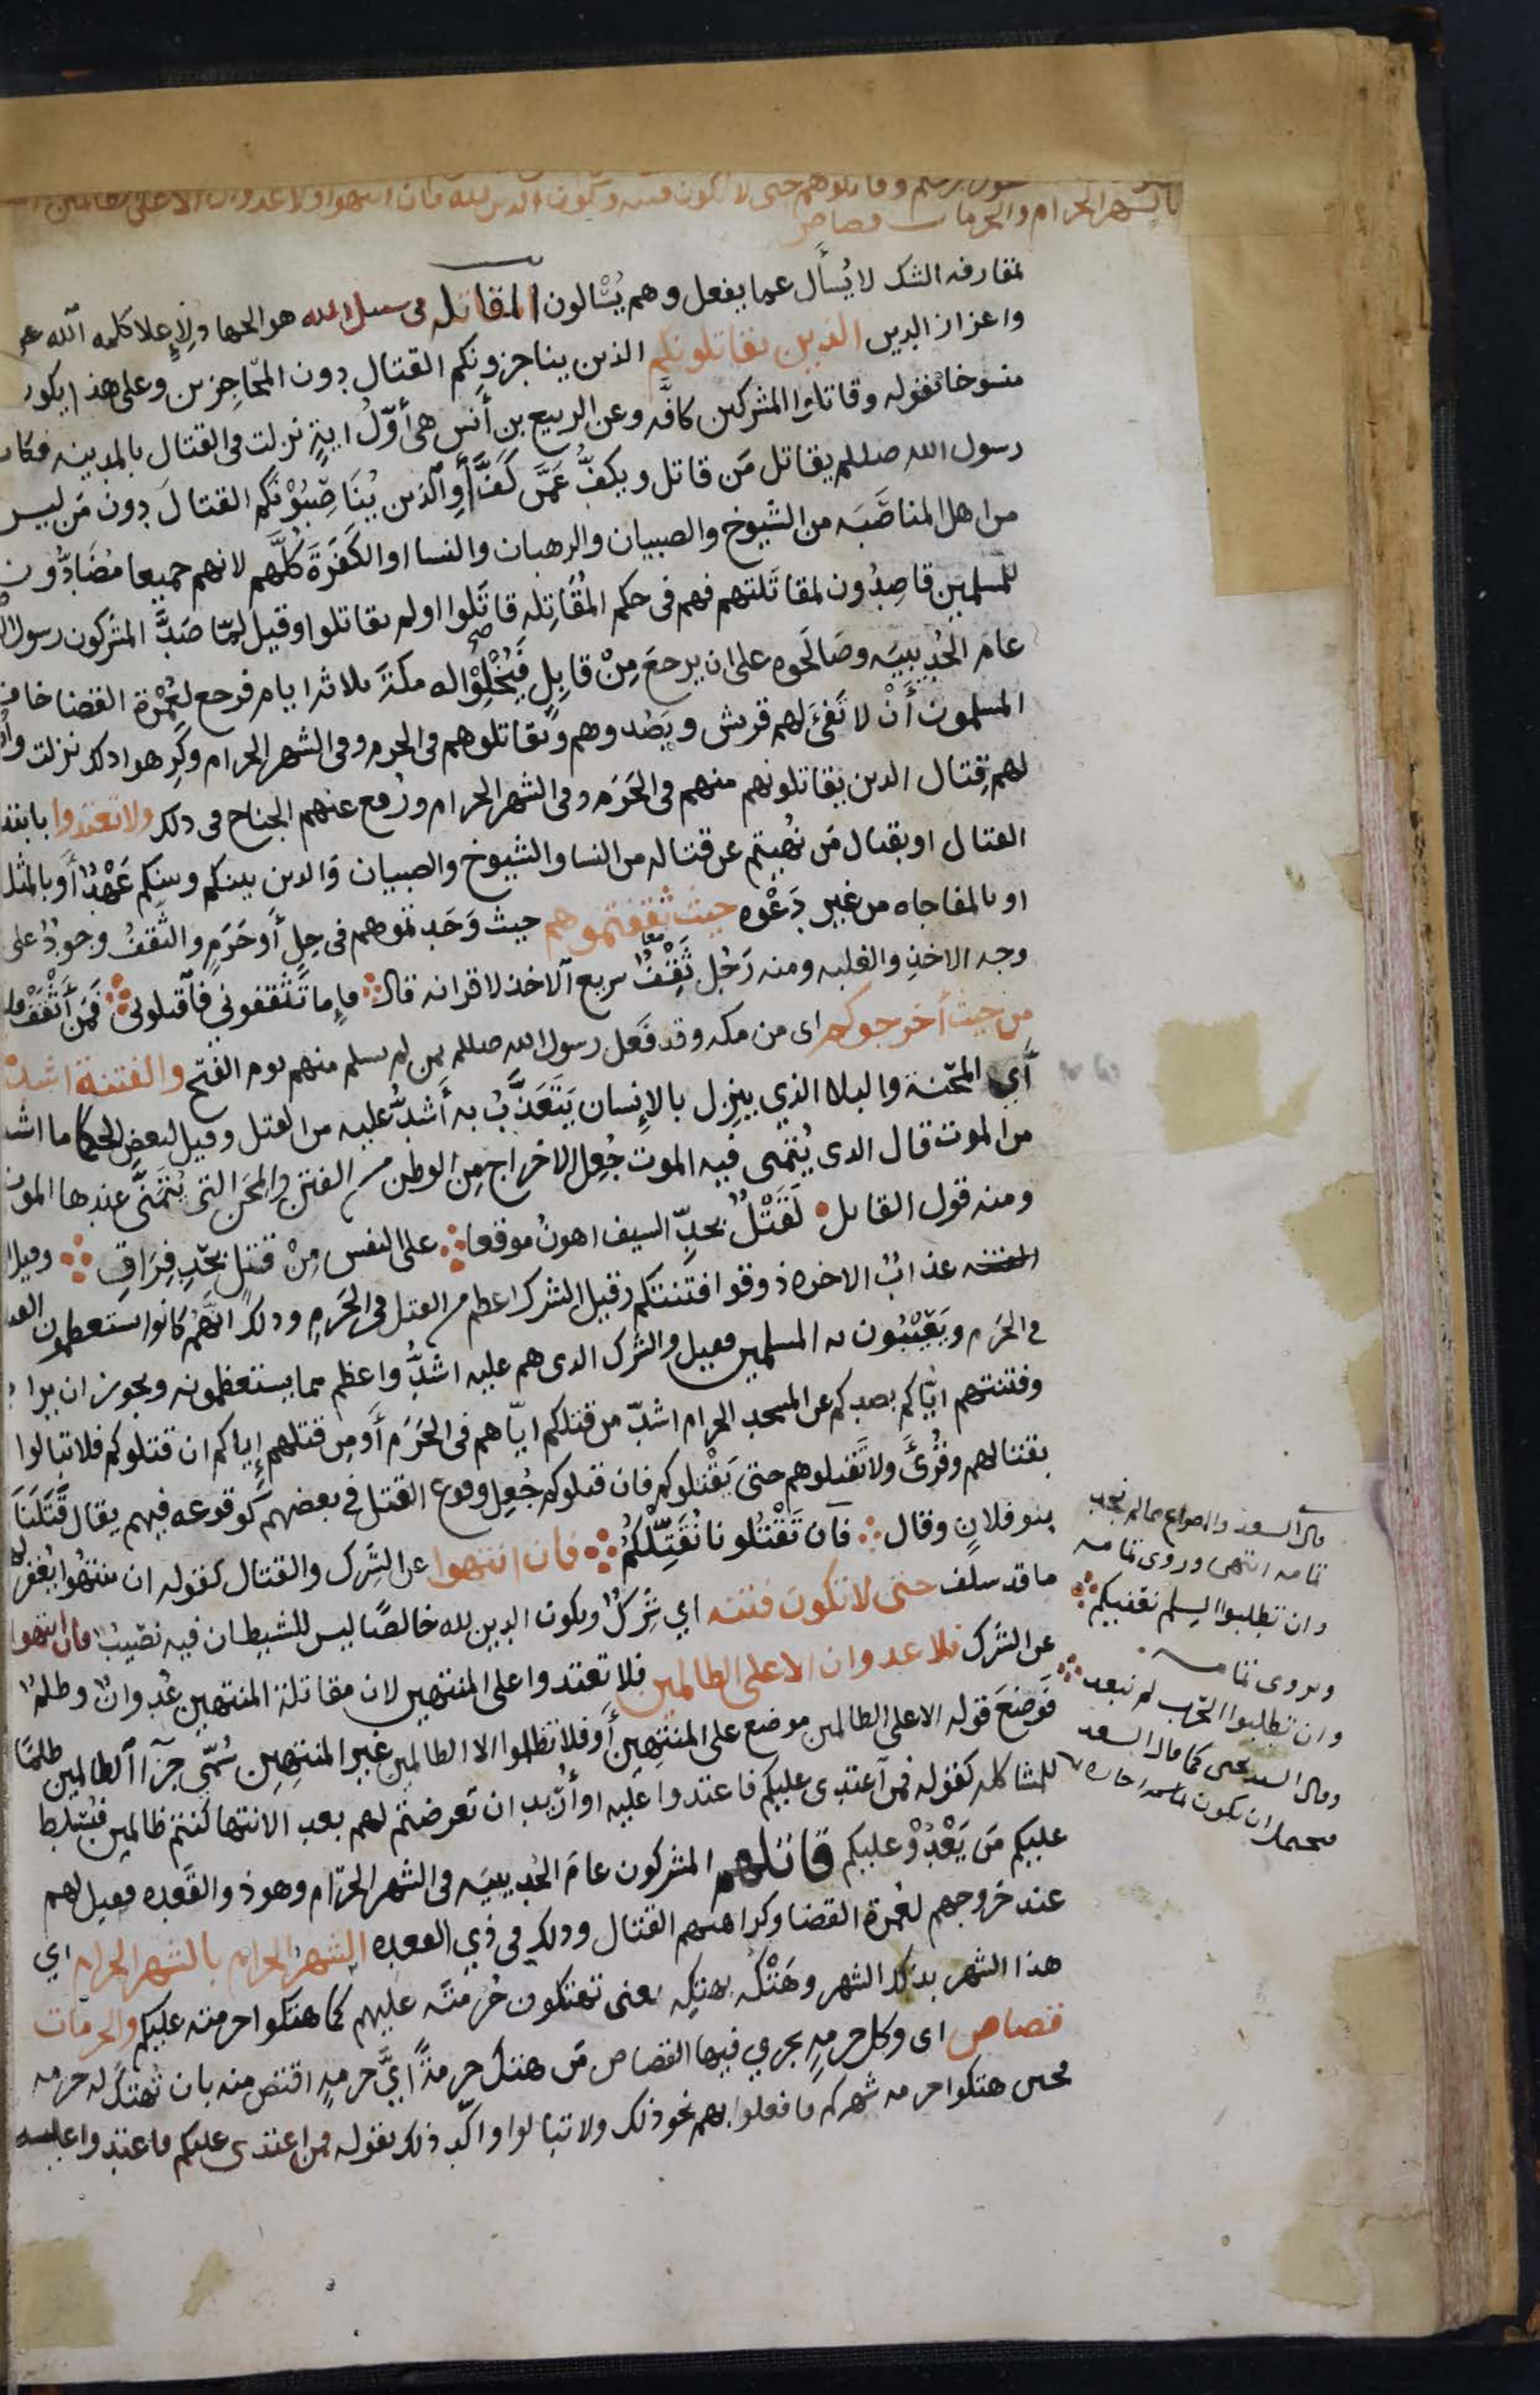 وقاتلوهم حتى لا تكون فتنه ويكون الدين لله فان انتهوا فلا عدوان الا على الظالمين
بالشهر الحرام والحرمات قصاص
لمقارفه الشك لا يُسأَل عما يفعل وهم يُسْالون المقاتله فى سبيل الله هو الجهاد لإِعلا كلمه الله
واعزاز الدين الذين يقاتلونكم الذين يناجزونكم القتال دون المحاجِزين وعلى هذا يكون
منسوخا بقوله وقاتلوا المشركين كافَّه وعن الربيع بن أَنس هى أَوّلُ ايةٍ نزلت فى القتال بالمدينه فكان
رسول الله صللم يقاتل مَن قاتل ويكفُّ عَمَّن كَفَّ أَوِ الذين يُنَاصِبُوْنَكم القتالَ دون مَن ليس
من اهل المناصَبَه من الشيوخ والصبيان والرهبان والنسا او الكَفَرَةَ كُلَّهم لانهم جميعا مُضَادُّون
للمسلمين قاصِدُون لمقاتَلتهم فهم فى حكم المُقَاتِله قاتَلوا او لم يقاتلوا وقيل لمّا صَدَّ المشركون رسول الله
عامَ الحُدَيبيَه وصَالَحوه على ان يرجعَ مِنْ قابِلٍ فَيُخْلُوْا له مكةَ ثلاثه ايام فرجع لعُمْرَة القضا خاف
المسلمون أَنْ لا تَفىَ لهم قريش ويَصُدوهم ويقاتلوهم فى الحرم وفى الشهر الحرام وكَرِهوا ذلك نزلت
لهم قِتال الذين يقاتلونهم منهم فى الحَرَم وفى الشهر الحرام ورُفع عنهم الجناح فى ذلك ولا تعتدوا بابتدا
القتال او بقتال مَن نُهيتم عن قتاله من النسا والشيوخ والصبيان والذين بينكم وبينهم عَهْدٌ أَو بالمثله
او بالمفاجاه من غير دَعْوه حيث ثقفتموهم حيث وَجَدتموهم فى حِلٍ أَو حَرَمٍ والثَّقفُ وجودٌ على
وجه الاخذِ والغلبه ومنه رَجُل ثَقِْفٌ سريع الاخذ لاقرانه قال فإِما تَثْقفوني فاقتلونى فَمَن أَثْقَفْ
من حيث أخرجوكم اى من مكه وقد فَعَل رسول الله صللم بمن لم يسلم منهم يوم الفتح والفتنة اشد
أَي المحْنة والبلا الذي ينزل بالإِنسان يَتَعَذَّبُ به أَشدُّ عليه من القتل وقيل لبعض الحكما ما اشد
من الموت قال الذى يُتمنى فيه الموتُ جُعِل الاخراج مِن الوطن من الفتن والمِحَن التى يُتَمَنَّى عندها الموت
ومنه قول القايل لَقَتْلٌ بحدِّ السيف اهونُ موقعا على النفس مِنْ قتل بحدِّ فِرَاقِ وقيل
الفتنه عذابُ الاخره ذوقوا فتنتكم وقيل الشرك اعظم من القتل فى الحَرَمِ وذلك انّهم كانوا يستعظمون القتل
في الحَرَم ويَعِيْبُون به المسلمين فقيل والشرك الذى هم عليه اشدُّ واعظم مما يستعظمونه ويجوز ان يراد
وفتنتهم ايّاكم بصدكم عن المسجد الحرام اشدّ من قتلكم ايّاهم فى الحَرَم أَو مِن قتلهم إِياكم ان قتلوكم فلا تبالوا
بقتالهم وقُرئَ ولا تقتلوهم حتى يَقْتلوكم فان قتلوكم جُعِل وقوع القتل في بعضهم كوقوعه فيهم يقال قَتَلَنا
بنو فلانٍ وقال فان تَقْتُلونا نُقَتِّلكُم فان انتهوا عن الشرك والقتال كقوله ان ينتهُوا يُغفر له
ما قد سلف حتى لا تكون فتنه اي شِركٌ ويكون الدين لله خالصًا ليس للشيطان فيه نصيبٌ فان انتهوا
عن الشرك فلا عدوان الا على الظالمين فلا تعتدوا على المنتهين لان مقاتلة المنتهين عُدوانٌ وظلمٌ
فوَضعَ قوله الا على الظالمين موضع على المنتهين أَو فلا تظلموا الا الظالمين غير المنتهِين سُمّي جزآ الظالمين ظلمًا
للمشاكله كقوله فمن اعتدى عليكم فاعتدوا عليه او أُريد ان تعرضتم لهم بعد الانتها كنتم ظالمين فيُسَلط
عليكم مَن يَعْدُوْ عليكم قاتلهم المشركون عامَ الحُديبيَه فى الشهر الحرَام وهو ذو القَعده فقيل لهم
عند خروجهم لعُمرة القضا وكراهتهم القتال وذلك فى ذي القعده الشهرُ الحرام بالشهر الحرام اي
هذا الشهر بذلك الشهر وهَتْكُه بهتكِه يعنى تهتكون حُرمتَه عليهم كما هتكوا حرمته عليكم والحرمات
قصاص اى وكل حرمهٍ يجري فيها القصاص مَن هتك حرمةً ايَّ حرمهٍ اقتص منه بان تُهتكَ له حرمه
فحين هتكوا حرمه شهركم فافعلوا بهم نحو ذلك ولا تبالوا واكّد ذلك بقوله فمن اعتدى عليكم فاعتدوا عليه
قال السعد
ثمامه انتهى وروى ثمامه
وان تطلبوا السلم نقفيكم
ويروى ثمامه
وان تطلبوا الحرب لم نبعد
وقال السعد يحيى كما قال السعد
فيحتمل ان يكون